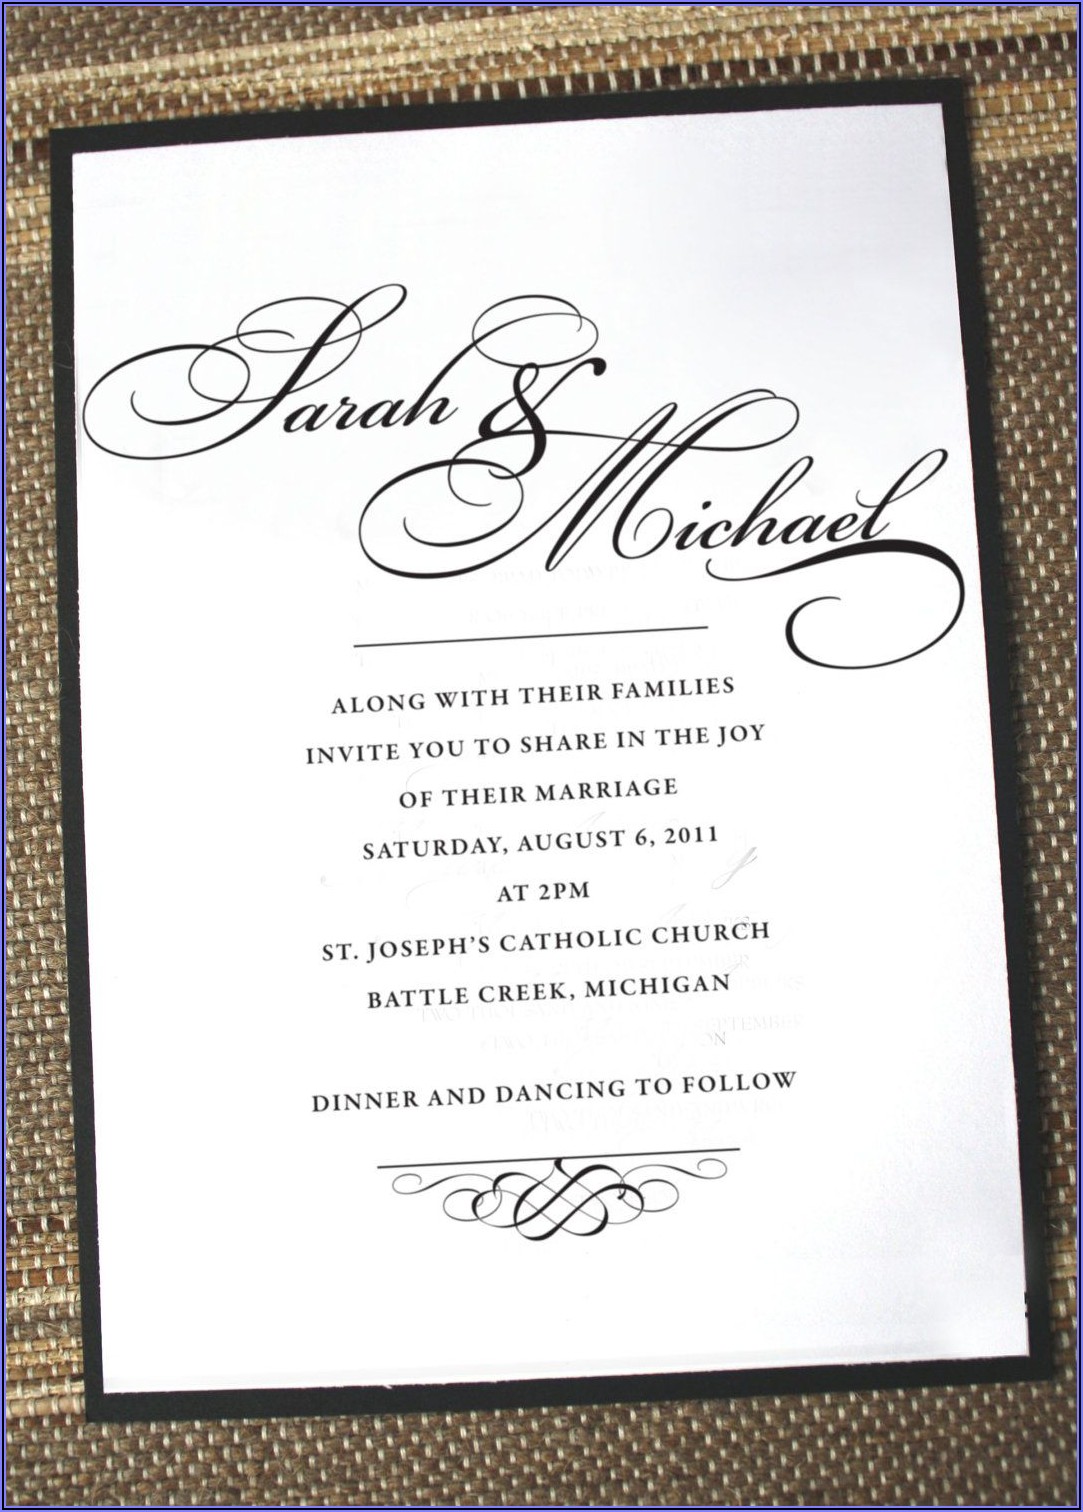 Sarah &
Michael
ALONG WITH THEIR FAMILIES
INVITE YOU TO SHARE IN THE JOY
OF THEIR MARRIAGE
SATURDAY, AUGUST 6, 2011
AT 2PM
ST. JOSEPH'S CATHOLIC CHURCH
BATTLE CREEK, MICHIGAN
DINNER AND DANCING TO FOLLOW